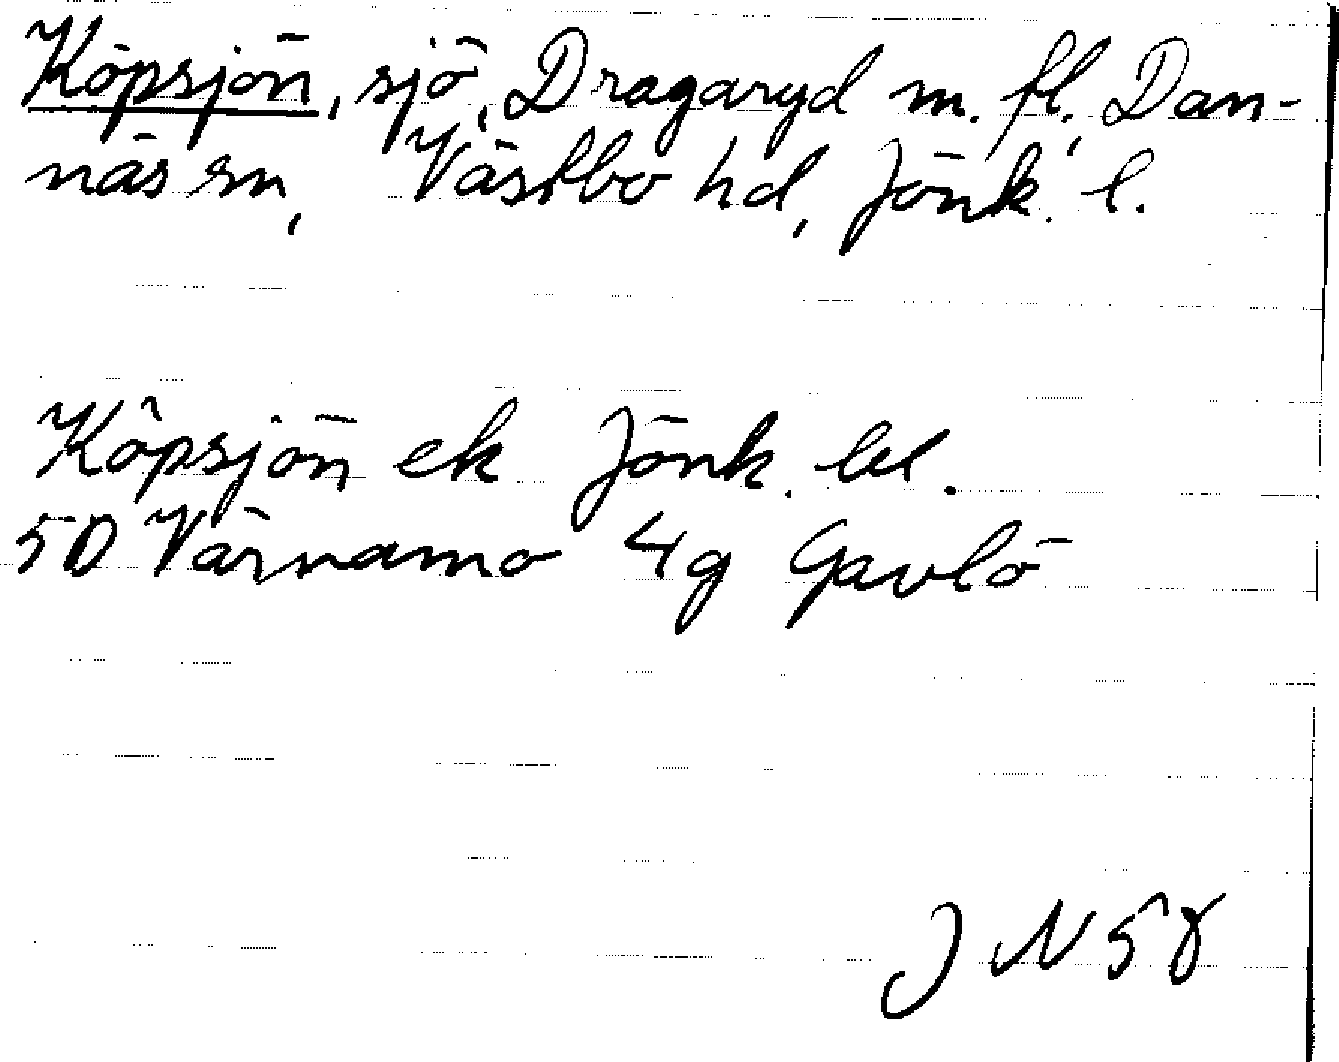 Köpsjön, sjö, Dragaryd m. fl., Dan-
näs sn, Västbo hd, Jönk. l.
Köpsjön ek Jönk. bl.
5D Värnamo 4g Gavlö
J N 58